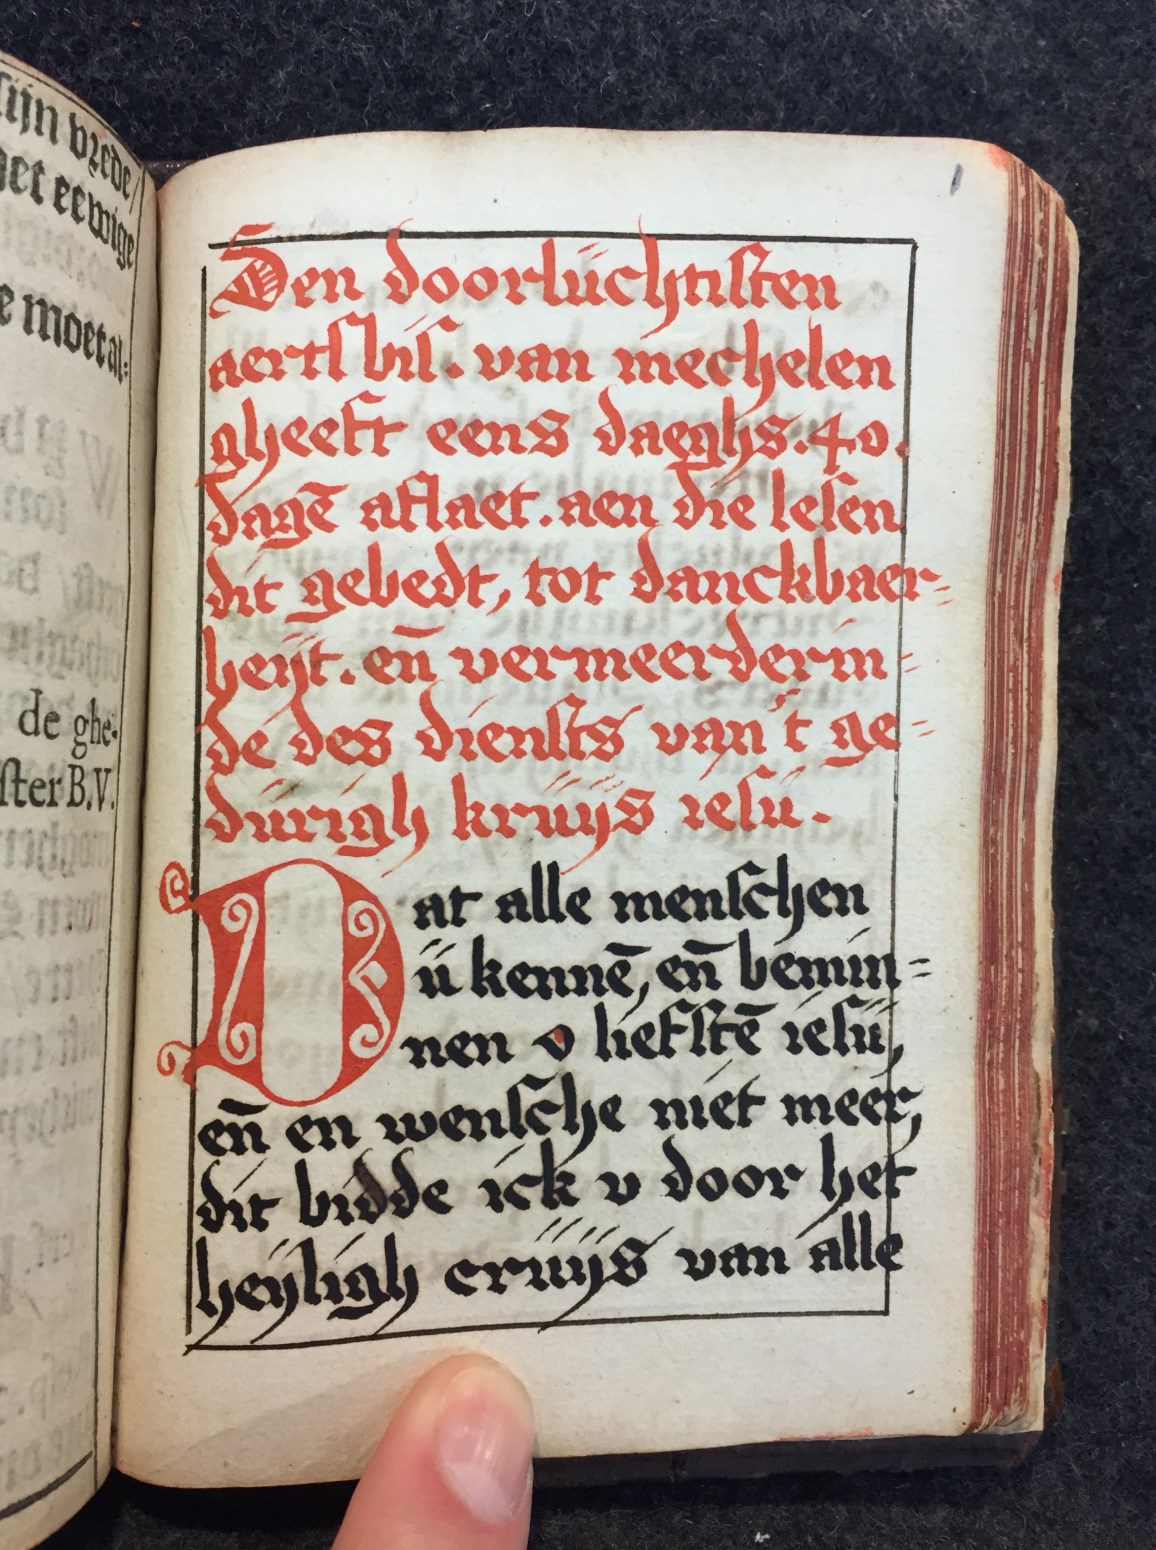 sijn vrede/
het eewige
e moet al-
de ghe-
ster B.V.
1
Den doorlüchtisten
aertsbis. van mechelen
gheeft eens daeghs. 40.
dagē aflaet. aen die lesen
dit gebedt, tot danckbaer=
heijt. en̄ vermeerderin=
de des diensts van't ge=
dürigh krüijs iesü.
Dat alle menschen
ü kennē, en̄ bemin=
nen o liefstē iesü,
en̄ en wensche niet meer,
dit bidde ick v door het
heijligh crüijs van alle